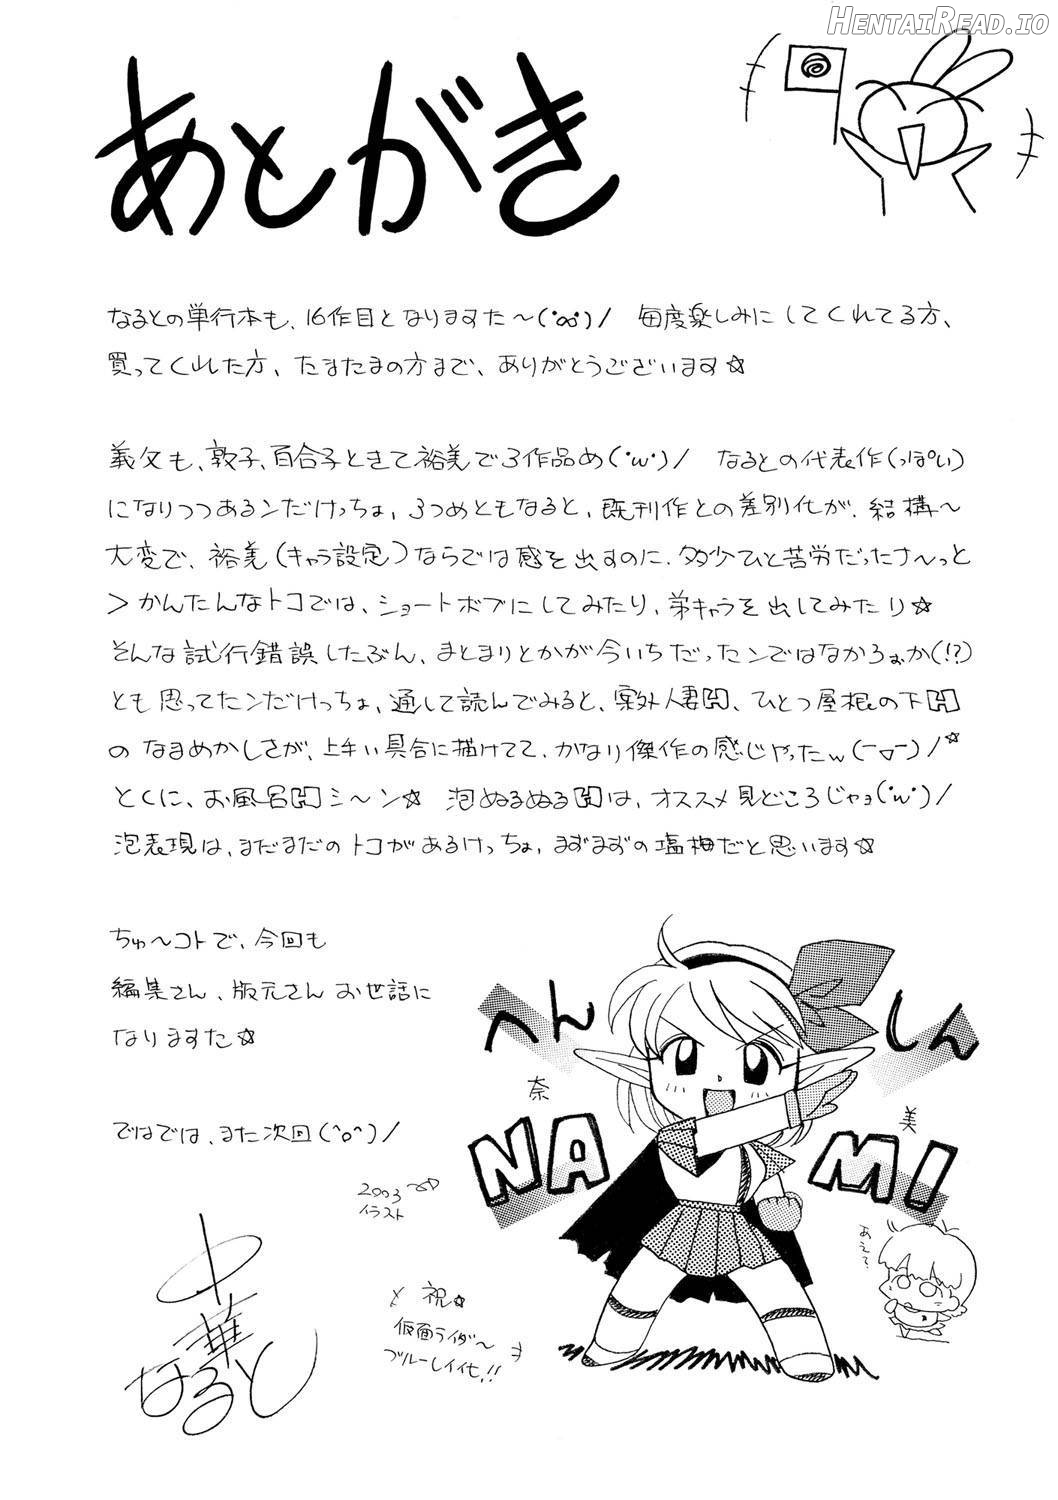 HENTAIREAD.IO
あとがき
なるとの単行本も、16作目となりますた～(°∞°)/　毎度楽しみにしてくれてる方、
買ってくれた方、たまたまの方まで、ありがとうございます☆
義父も、敦子、百合子ときて裕美で3作品め(・ω・)/　なるとの代表作(っぽい)
になりつつあるンだけっちょ、3つめともなると、既刊作との差別化が、結構～
大変で、裕美(キャラ設定)ならでは感を出すのに、多少ひと苦労だったナ～っと
＞かんたんなトコでは、ショートボブにしてみたり、弟キャラを出してみたり☆
そんな試行錯誤したぶん、まとまりとかが今いちだったンではなかろぉか(!?)
とも思ってたンだけっちょ、通して読んでみると、案外人妻H、ひとつ屋根の下H
のなまめかしさが、上手い具合に描けてて、かなり傑作の感じやったw(￣▽￣)/☆
とくに、お風呂Hシ～ン☆　泡ぬるぬるHは、オススメ見どころじゃョ(・ω・)/
泡表現は、まだまだのトコがあるけっちょ、まずまずの塩梅だと思います☆
ちゅ～コトで、今回も
編集さん、版元さんお世話に
なりますた☆
ではでは、また次回(^o^)/
へんしん
奈美
NAMI
2003
イラスト
あえて、
と 祝☆
仮面ライダ～
ブルーレイ化!!
中華
なると